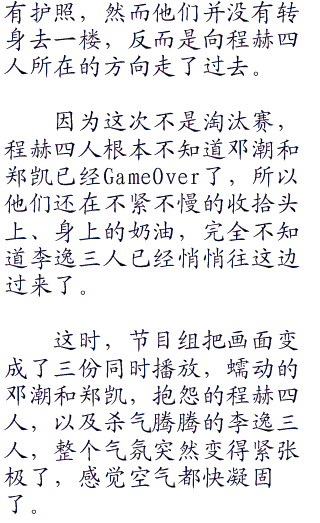 有护照，然而他们并没有转
身去一楼，反而是向程赫四
人所在的方向走了过去。
因为这次不是淘汰赛，
程赫四人根本不知道邓潮和
郑凯已经GameOver了，所以
他们还在不紧不慢的收拾头
上、身上的奶油，完全不知
道李逸三人已经悄悄往这边
过来了。
这时，节目组把画面变
成了三份同时播放，蠕动的
邓潮和郑凯，抱怨的程赫四
人，以及杀气腾腾的李逸三
人，整个气氛突然变得紧张
极了，感觉空气都快凝固
了。